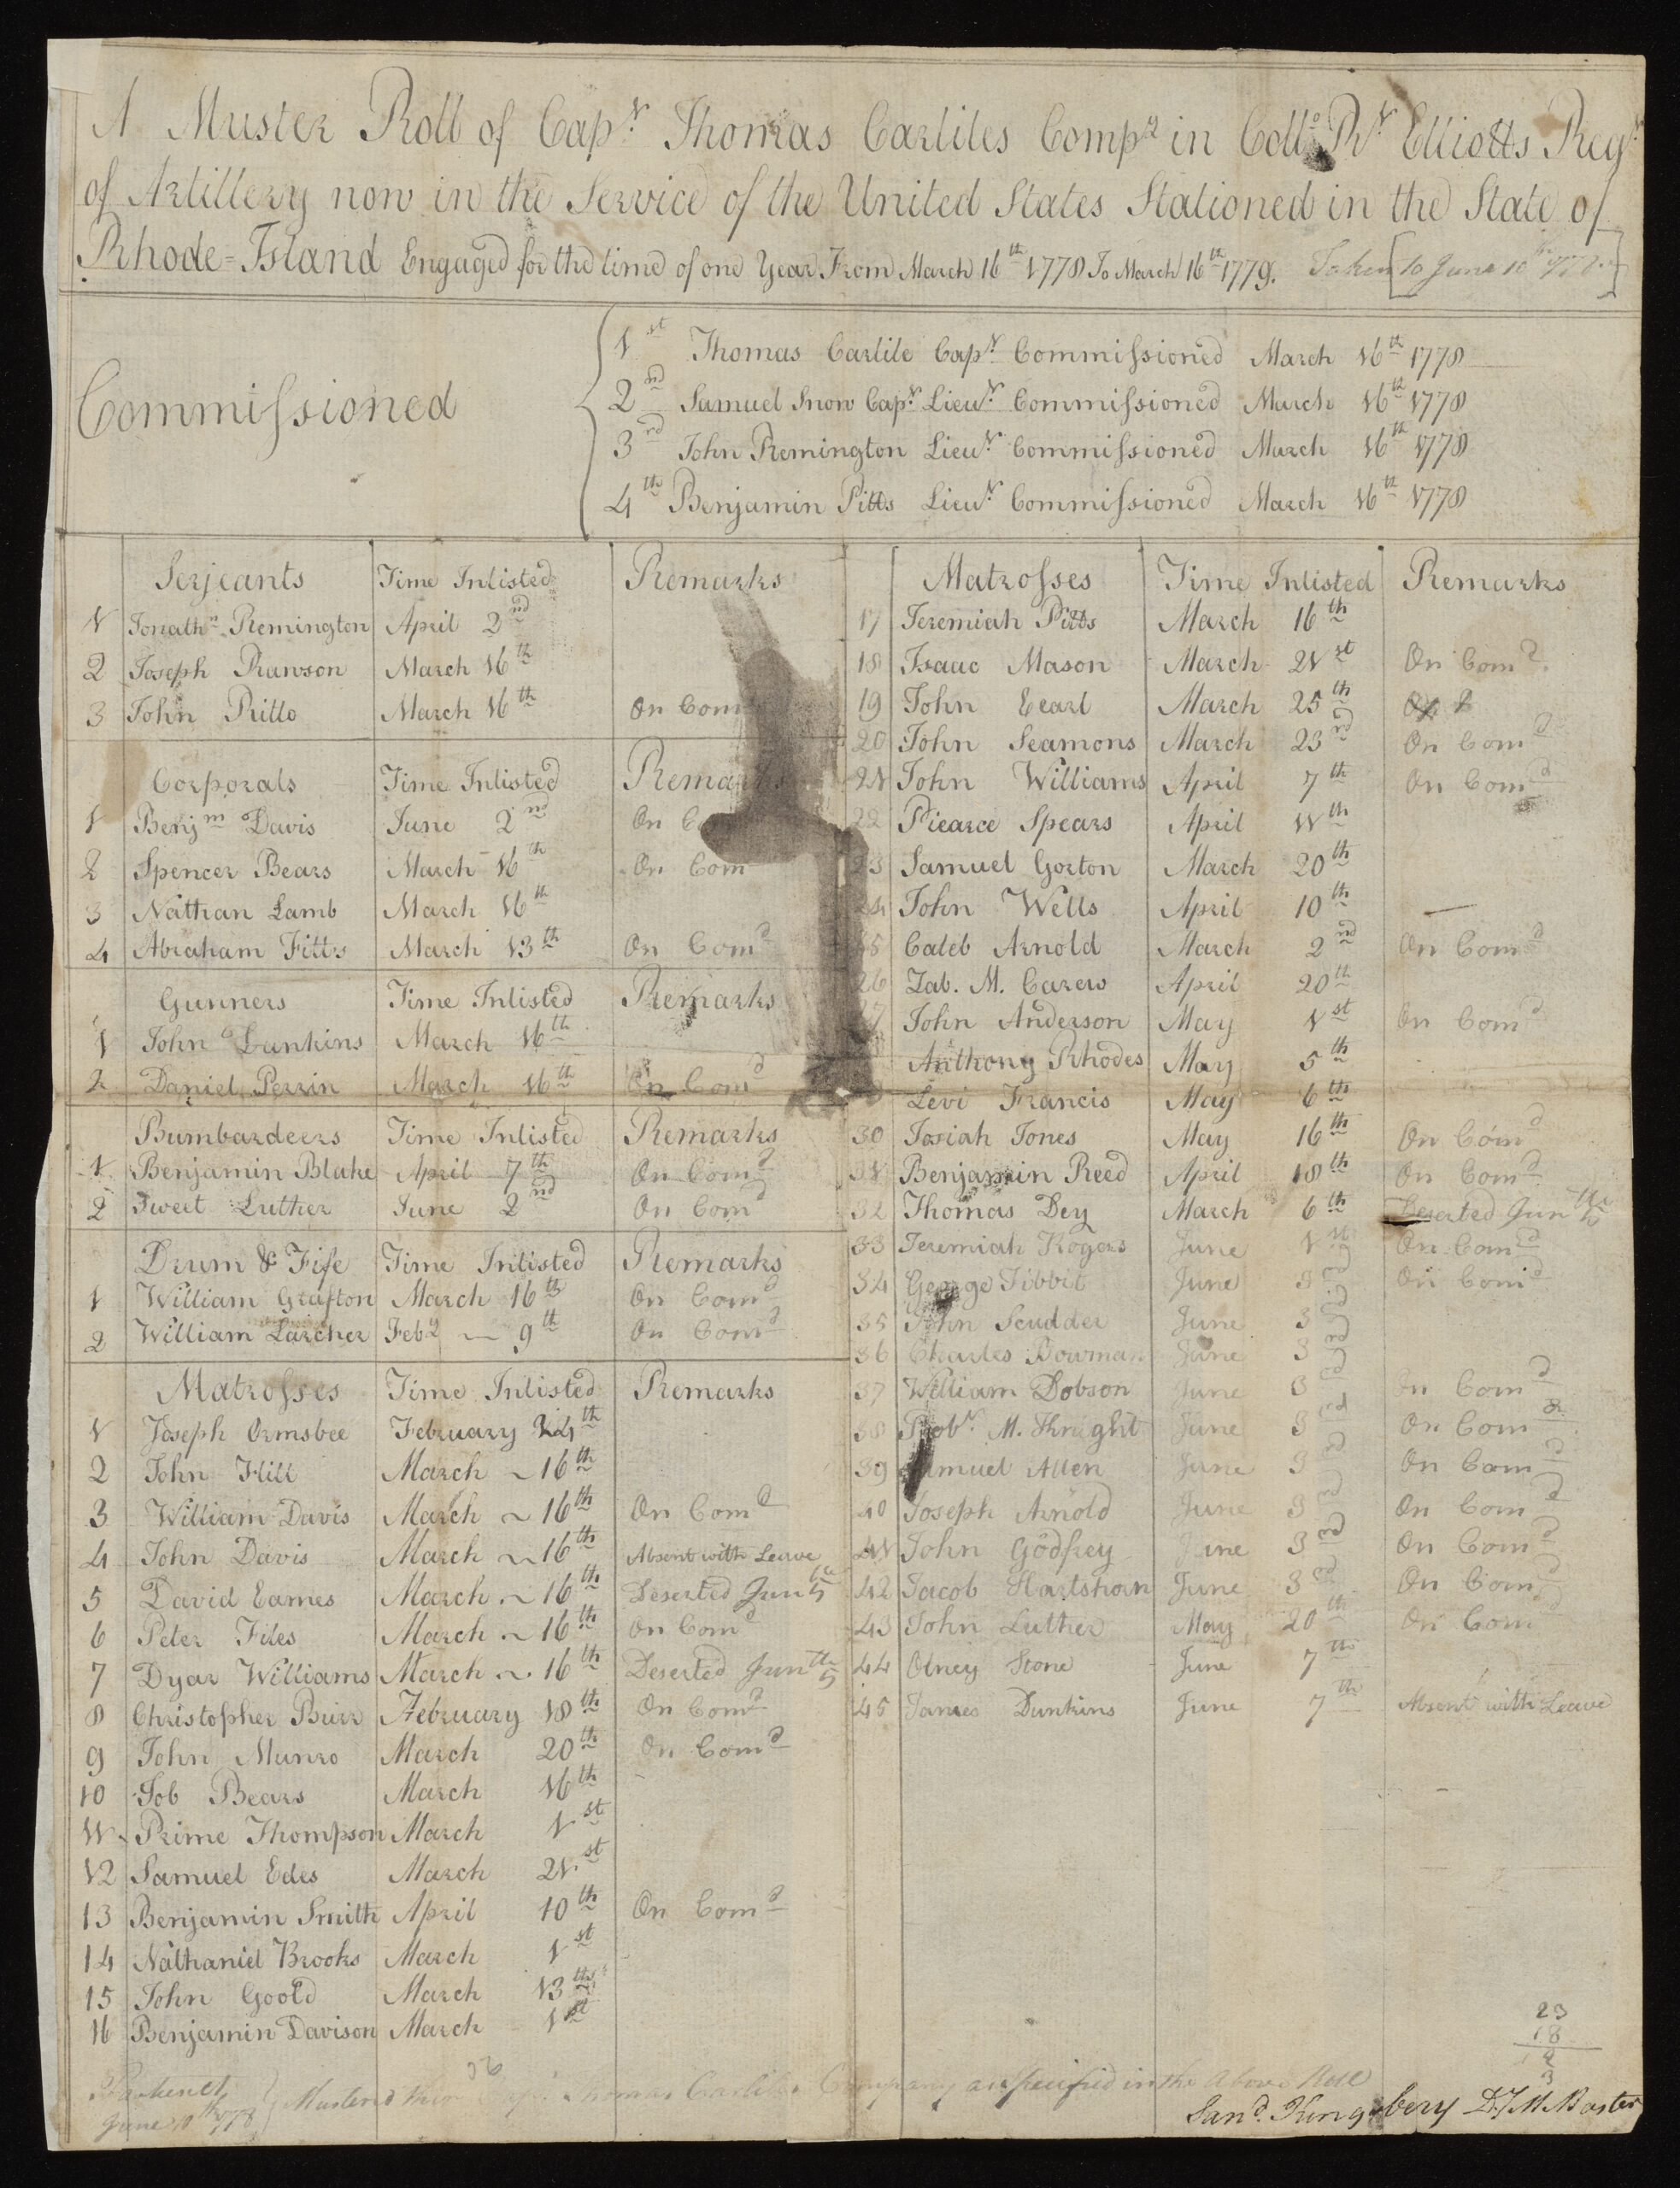 A Muster Roll of Capt Thomas Carliles Compy in Collo Rt Elliotts Regt
of Artillery now in the Service of the United States Stationed in the State of
Rhode=Island Engaged for the time of one Year From March 16th 1778 To March 16th 1779. Taken [to June 10th 1778]
Commissioned
1st Thomas Carlile Capt Commissioned March 16th 1778
2nd Samuel Snow Capt Lieut Commissioned March 16th 1778
3rd John Remington Lieut Commissioned March 16th 1778
4th Benjamin Pitts Lieut Commissioned March 16th 1778
Serjeants Time Inlisted Remarks
1 Jonathn Remington April 2nd
2 Joseph Rawson March 16th
3 John Rillo March 16th On Com
Corporals Time Inlisted Remarks
1 Benjm Davis June 2nd On
2 Spencer Bears March 16th On Com
3 Nathan Lamb March 16th
4 Abraham Fitts March 13th On Comd
Gunners Time Inlisted Remarks
1 John Dunkins March 16th
2 Daniel Perrin March 16th On Comd
Bumbardeers Time Inlisted Remarks
1 Benjamin Blake April 7th On Comd
2 Sweet Luther June 2nd On Comd
Drum & Fife Time Inlisted Remarks
1 William Grafton March 16th On Comd
2 William Larcher Feby 9th On Comd
Matrosses Time Inlisted Remarks
1 Joseph Ormsbee February 24th
2 John Hill March 16th
3 William Davis March 16th On Comd
4 John Davis March 16th Absent with Leave
5 David Eames March 16th Deserted Jun 5th
6 Peter Files March 16th On Comd
7 Dyar Williams March 16th Deserted Jun 5th
8 Christopher Burr February 18th On Comd
9 John Munro March 20th On Comd
10 Job Bears March 16th
11 Prime Thompson March 1st
12 Samuel Edes March 21st
13 Benjamin Smith April 10th On Comd
14 Nathaniel Brooks March 1st
15 John Goold March 13th
16 Benjamin Davison March 1st
Matrosses Time Inlisted Remarks
17 Jeremiah Pitts March 16th
18 Isaac Mason March 21st On Comd
19 John Eearl March 25th
20 John Seamons March 23rd On Comd
21 John Williams April 7th On Comd
22 Piearce Spears April 11th
23 Samuel Gorton March 20th
24 John Wells April 10th
25 Caleb Arnold March 2nd On Comd
26 Zab. M. Carew April 20th
27 John Anderson May 1st On Comd
Anthony Rhodes May 5th
Levi Francis May 6th
30 Josiah Jones May 16th On Comd
31 Benjamin Reed April 18th On Comd
32 Thomas Dey March 6th Deserted Jun 5th
33 Jeremiah Rogers June 1st On Comd
34 George Tibbit June 3rd On Comd
35 John Scudder June 3rd
36 Charles Bowman June 3rd
37 William Dobson June 3rd On Comd
38 Robt M. Knight June 3rd On Comd
39 Samuel Allen June 3rd On Comd
40 Joseph Arnold June 3rd On Comd
41 John Godfrey June 3rd On Comd
42 Jacob Hartshorn June 3rd On Comd
43 John Luther May 20th On Comd
44 Olney Stone June 7th
45 James Dunkins June 7th Absent with Leave
23
18
2
3
June 10th 1778 Mustered then Capt Thomas Carliles Company as specified in the Above Roll
Sand. Kingsbery D.y M. Master